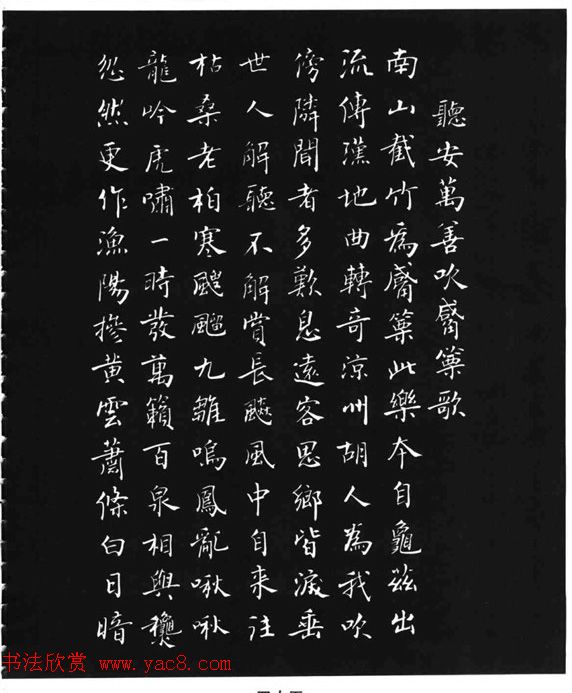 聽安萬善吹觱篥歌
南山截竹為觱篥此樂本自龜茲出
流傳漢地曲轉奇涼州胡人為我吹
傍隣聞者多歎息遠客思鄉皆淚垂
世人解聽不解賞長飈風中自來往
枯桑老柏寒颼飀九雛鳴鳳亂啾啾
龍吟虎嘯一時發萬籟百泉相與龝
忽然更作漁陽摻黃雲蕭條白日暗
书法欣赏 www.yac8.com